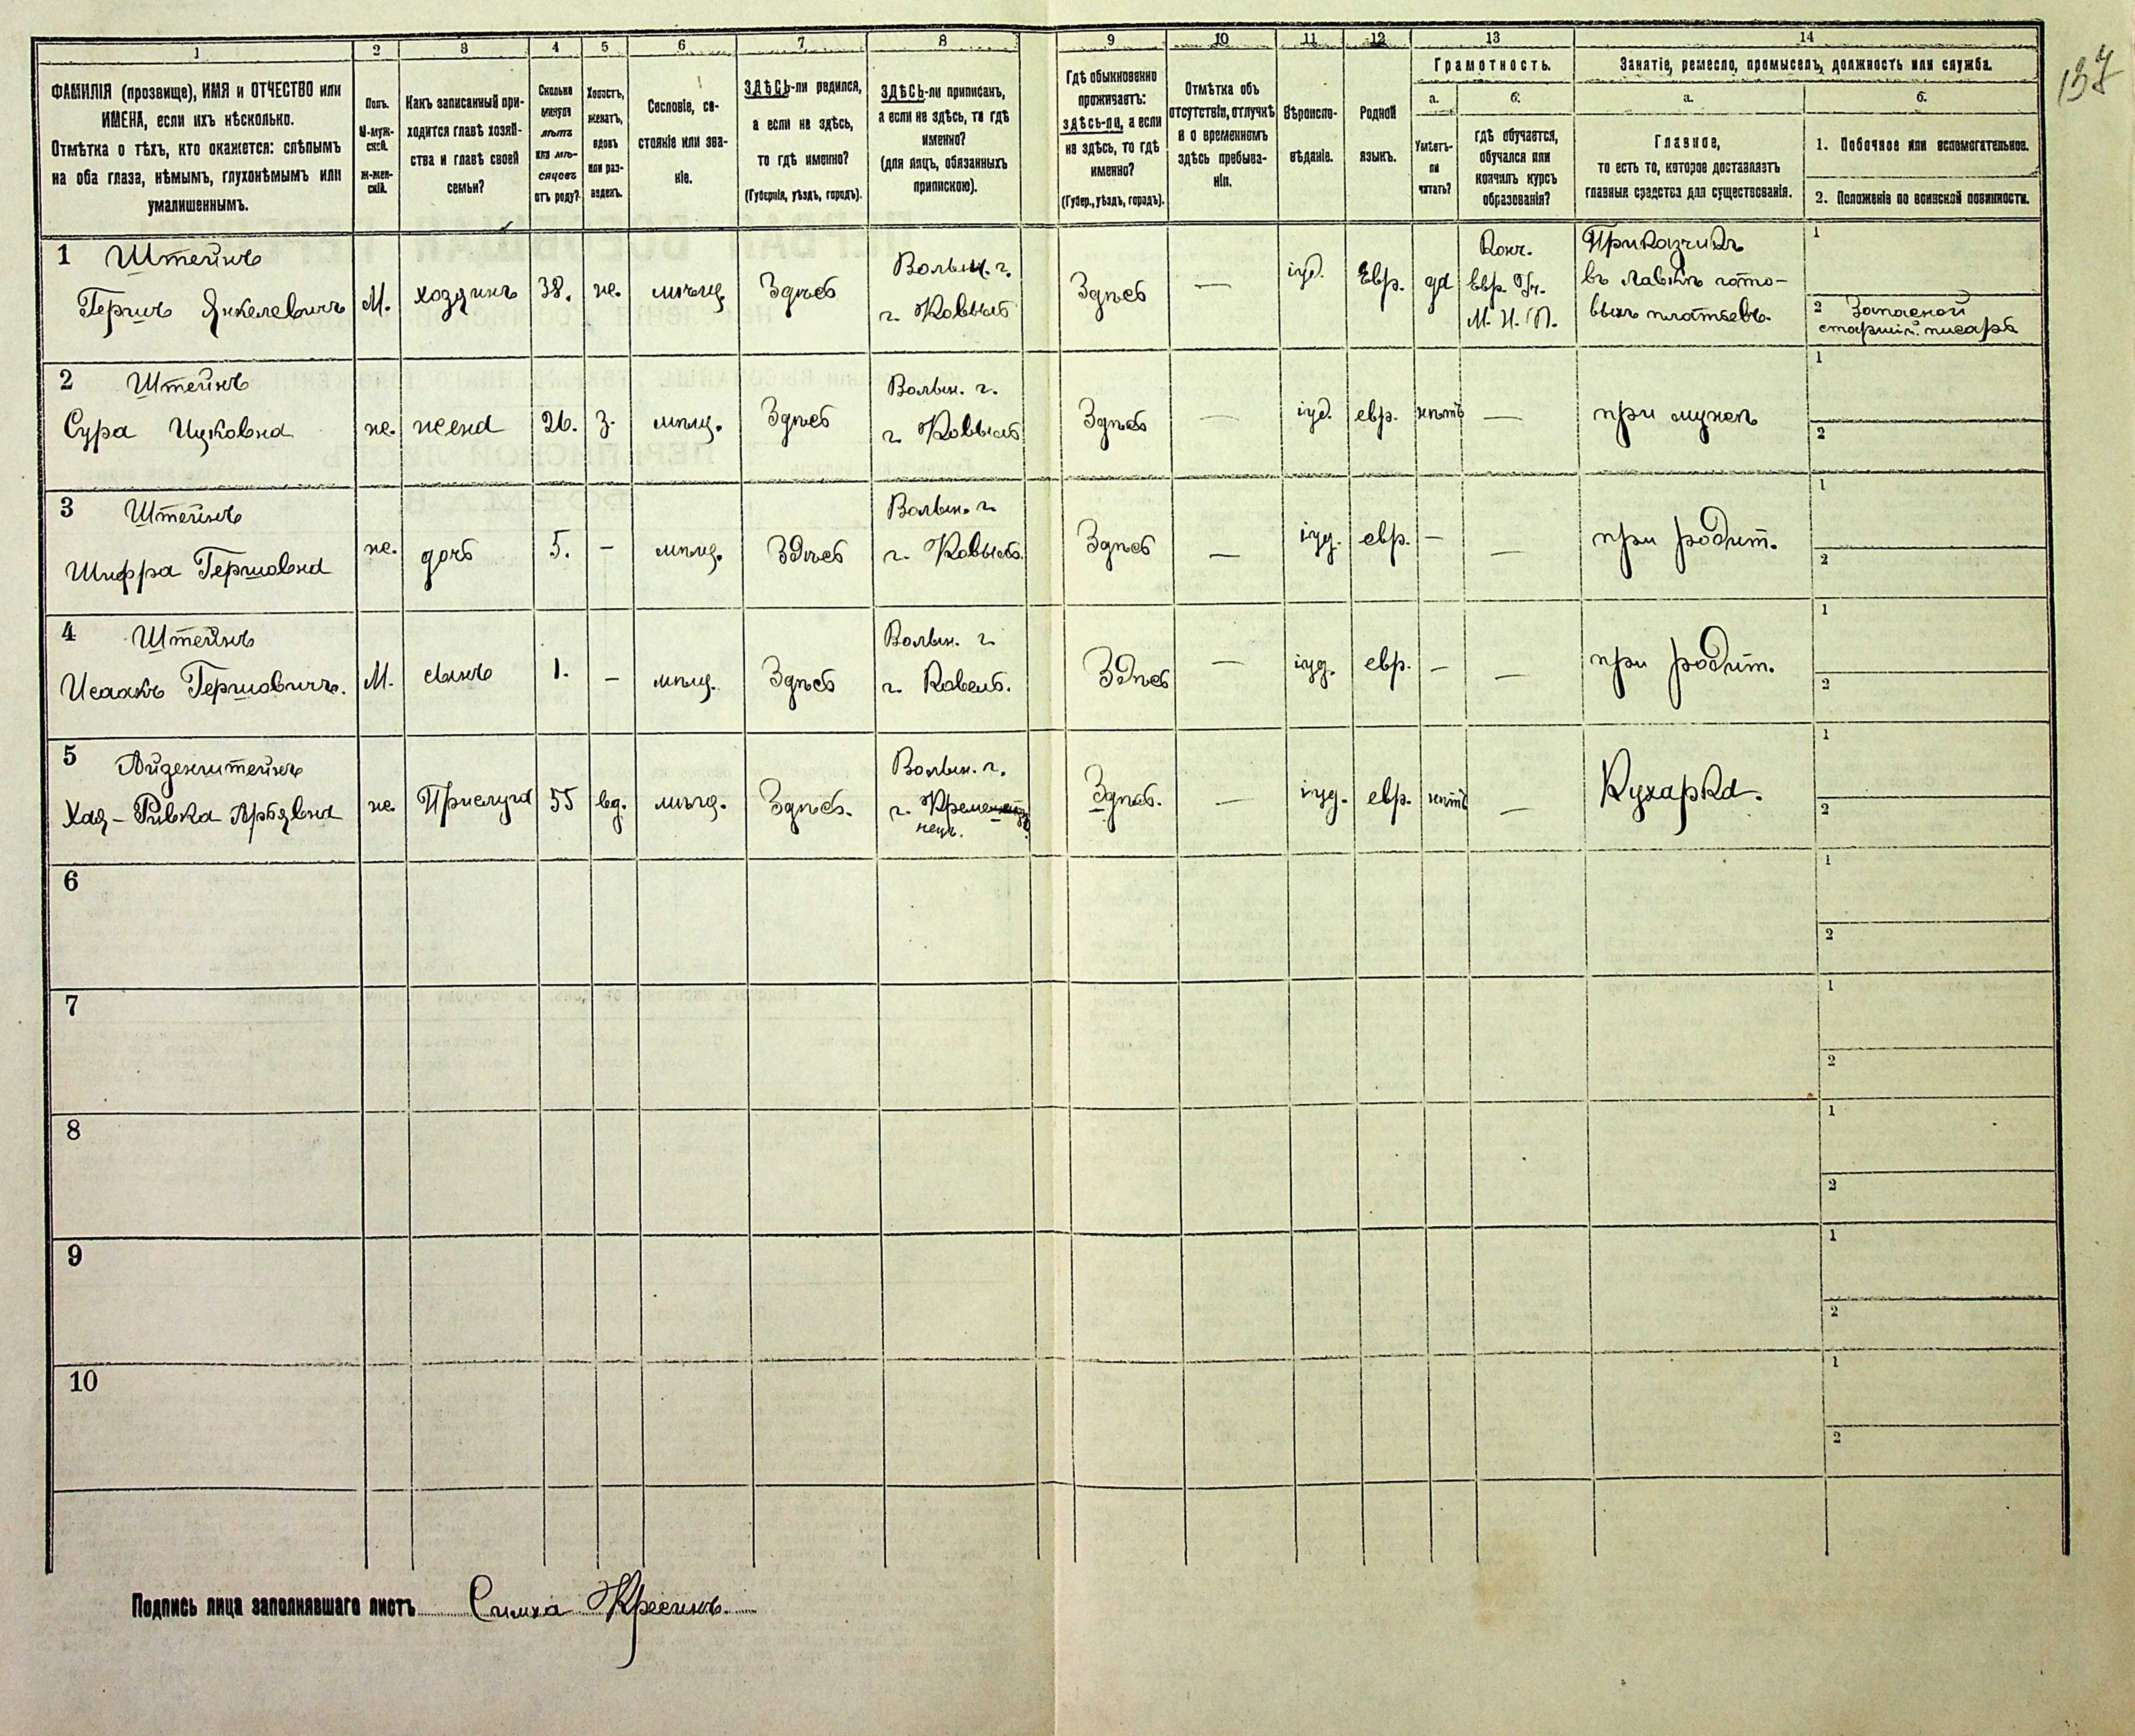 137
1 2 3 4 5 6 7 8 9 10 11 12 13 14
ФАМИЛІЯ (прозвище), ИМЯ и ОТЧЕСТВО или
ИМЕНА, если ихъ нѣсколько.
Отмѣтка о тѣхъ, кто окажется: слѣпымъ
на оба глаза, нѣмымъ, глухонѣмымъ или
умалишеннымъ.
Полъ.
М-муж-
ской.
Ж-жен-
скій.
Какъ записанный при-
ходится главѣ хозяй-
ства и главѣ своей
семьи?
Сколько
минуло
лѣтъ
или мѣ-
сяцевъ
отъ роду?
Холостъ,
женатъ,
вдовъ
или раз-
веденъ.
Сословіе, со-
стояніе или зва-
ніе.
ЗДѢСЬ-ли родился,
а если не здѣсь,
то гдѣ именно?
(Губернія, уѣздъ, городъ).
ЗДѢСЬ-ли приписанъ,
а если не здѣсь, то гдѣ
именно?
(для лицъ, обязанныхъ
припискою).
Гдѣ обыкновенно
проживаетъ:
здѣсь-ли, а если
не здѣсь, то гдѣ
именно?
(Губер., уѣздъ, городъ).
Отмѣтка объ
отсутствіи, отлучкѣ
и о временномъ
здѣсь пребыва-
ніи.
Вѣроиспо-
вѣданіе.
Родной
языкъ.
Грамотность.
а.
Умѣетъ-
ли
читать?
б.
гдѣ обучается,
обучался или
кончилъ курсъ
образованія?
Занятіе, ремесло, промыселъ, должность или служба.
а.
Главное,
то есть то, которое доставляетъ
главныя средства для существованія.
б.
1. Побочное или вспомогательное.
2. Положеніе по воинской повинности.
1 Штейнъ
Гершъ Янкелевичъ
М.
хозяинъ
38.
же.
мѣщ.
Здѣсь
Волын. г.
г. Ковель
Здѣсь
—
іуд.
Евр.
да
Конч.
Евр. Уч.
М. Н. П.
Приказчикъ
въ лавкѣ гото-
выхъ платьевъ.
1
2 Запасной
старшій писарь
2 Штейнъ
Сура Ицковна
же.
жена
26.
з.
мѣщ.
Здѣсь
Волын. г.
г. Ковель
Здѣсь
—
іуд.
евр.
нѣтъ
—
при мужѣ
1
2
3 Штейнъ
Шифра Гершовна
же.
дочь
5.
—
мѣщ.
Здѣсь
Волын. г.
г. Ковель.
Здѣсь
—
іуд.
евр.
—
—
при родит.
1
2
4 Штейнъ
Исаакъ Гершовичъ.
М.
сынъ
1.
—
мѣщ.
Здѣсь
Волын. г.
г. Ковель.
Здѣсь
—
іуд.
евр.
—
—
при родит.
1
2
5 Айзенштейнъ
Хая-Ривка Арьявна
же
Прислуга
55
вд.
мѣщ.
Здѣсь.
Волын. г.
г. Креме
нецъ.
Здѣсь.
—
іуд.
евр.
нѣтъ
—
Кухарка.
1
2
6
1
2
7
1
2
8
1
2
9
1
2
10
1
2
Подпись лица заполнявшаго листъ Симха Кресинъ.